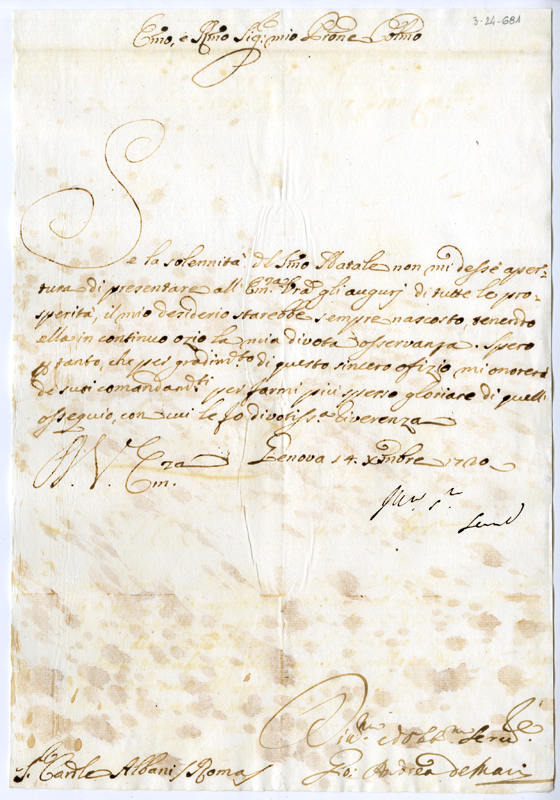 3-24-681
Emo, e Rmo Sig.r mio Prone Colmo
Se la solennità del Smo Natale non mi desse aper-
tura di presentare all'Em.za V.ra gli augurj di tutte le pro-
sperità, il mio desiderio starebbe sempre nascosto, tenendo
ella in continuo ozio la mia divota osservanza. Spero
ptanto, che per gradim.to di questo sincero ofizio mi onorerà
de suoi comandam.ti per farmi più spesso gloriare di quell'
ossequio, con cui le fo divotiss.a riverenza
Genova 14. Xmbre 1720
V. Em.za
Div.mo ed Obb.mo Serv.re
Gio: Andrea de Mari
S.r Card.le Albani / Roma /